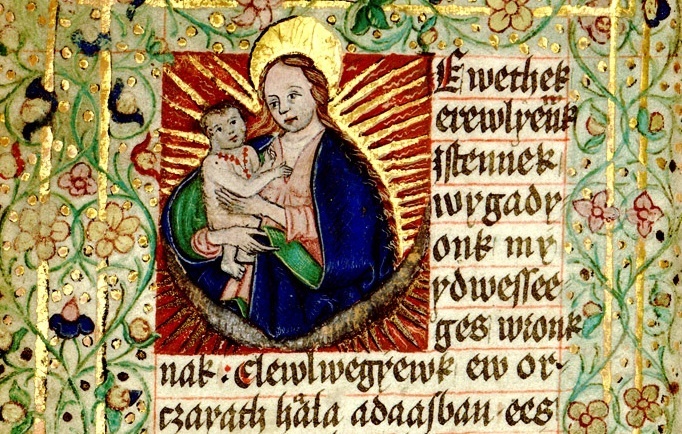 Ewethek
erewlyenk
istennek
wygady
onk my
ydwessee
ges wronk
nak : elewlwegyewk ew or-
czayath hala adaasban ees